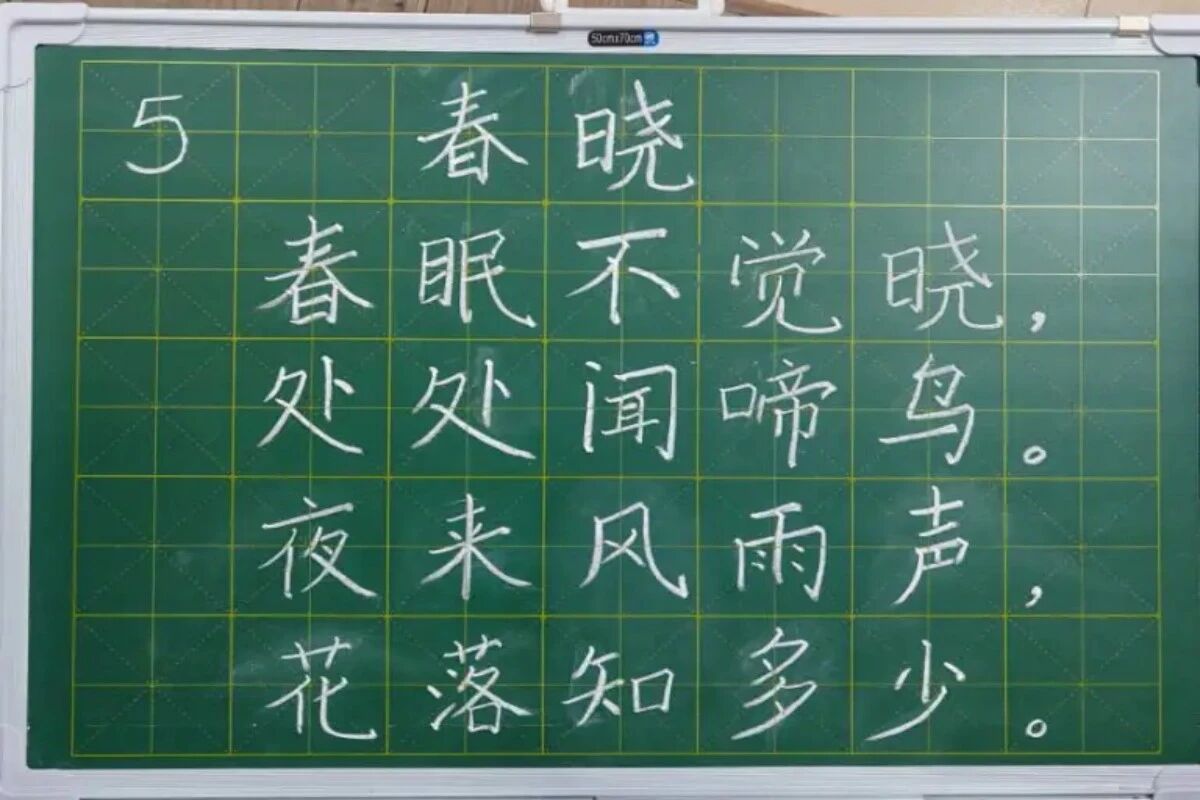 50cm×70cm
5 春晓
春眠不觉晓，
处处闻啼鸟。
夜来风雨声，
花落知多少。